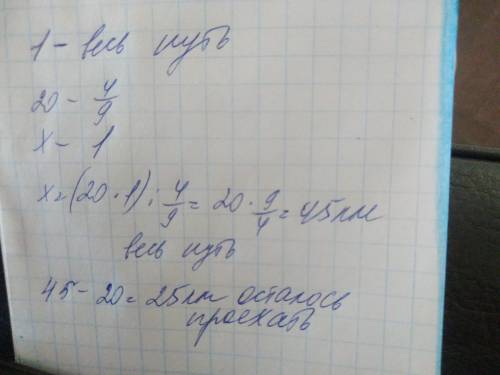 1 - весь путь
20 - 4/9
x - 1
x = (20 · 1) : 4/9 = 20 · 9/4 = 45 км
весь путь
45 - 20 = 25 км осталось
проехать